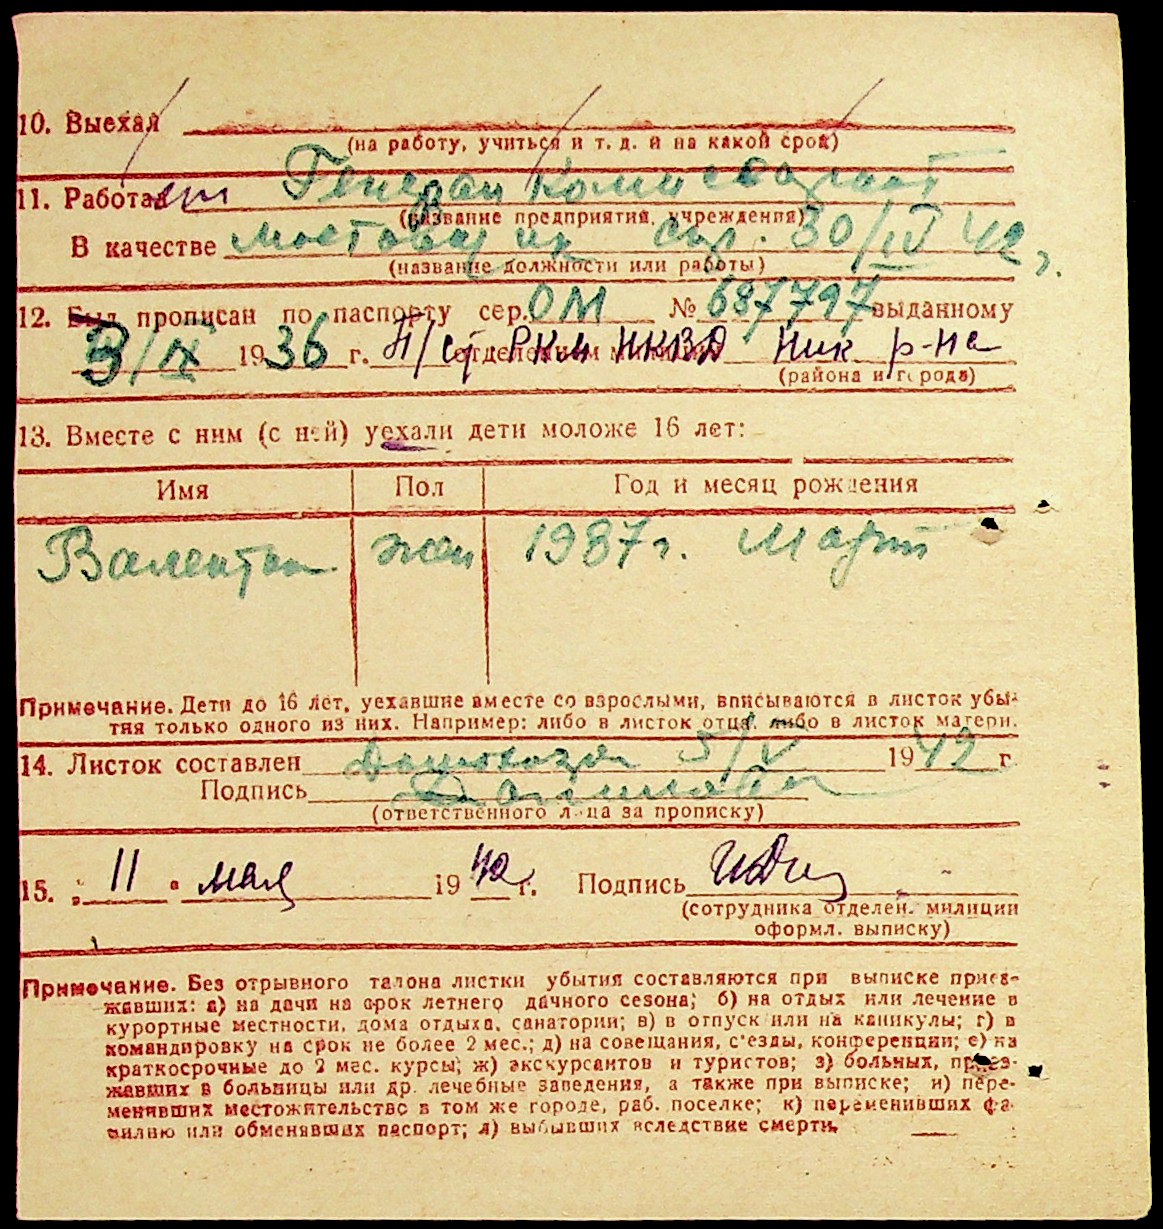 10. Выехал
(на работу, учиться и т. д. и на какой срок)
11. Работает Генерал Комисариат
(название предприятия, учреждения)
В качестве мостовщик 30/IV 42 г.
(название должности или работы)
12. Был прописан по паспорту сер. ОМ № 687797 выданному
3/IX 1936 г. отделением милиции РКМ НКВД Ник р-на
(района и города)
13. Вместе с ним (с ней) уехали дети моложе 16 лет:
Имя Пол Год и месяц рождения
Валентин. жен 1937 г. Март
Примечание. Дети до 16 лет, уехавшие вместе со взрослыми, вписываются в листок убы-
тия только одного из них. Например: либо в листок отца, либо в листок матери.
14. Листок составлен 5/V 1942 г
Подпись
(ответственного лица за прописку)
15. „ 11 " мая 1942 г. Подпись
(сотрудника отделен. милиции
оформл. выписку)
Примечание. Без отрывного талона листки убытия составляются при выписке приез-
жавших: а) на дачи на срок летнего дачного сезона; б) на отдых или лечение в
курортные местности, дома отдыха, санатории; в) в отпуск или на каникулы; г) в
командировку на срок не более 2 мес.; д) на совещания, с'езды, конференции; е) на
краткосрочные до 2 мес. курсы; ж) экскурсантов и туристов; з) больных, приез-
жавших в больницы или др. лечебные заведения, а также при выписке; и) пере-
менивших местожительство в том же городе, раб. поселке; к) переменивших фа-
милию или обменявших паспорт; л) выбывших вследствие смерти.